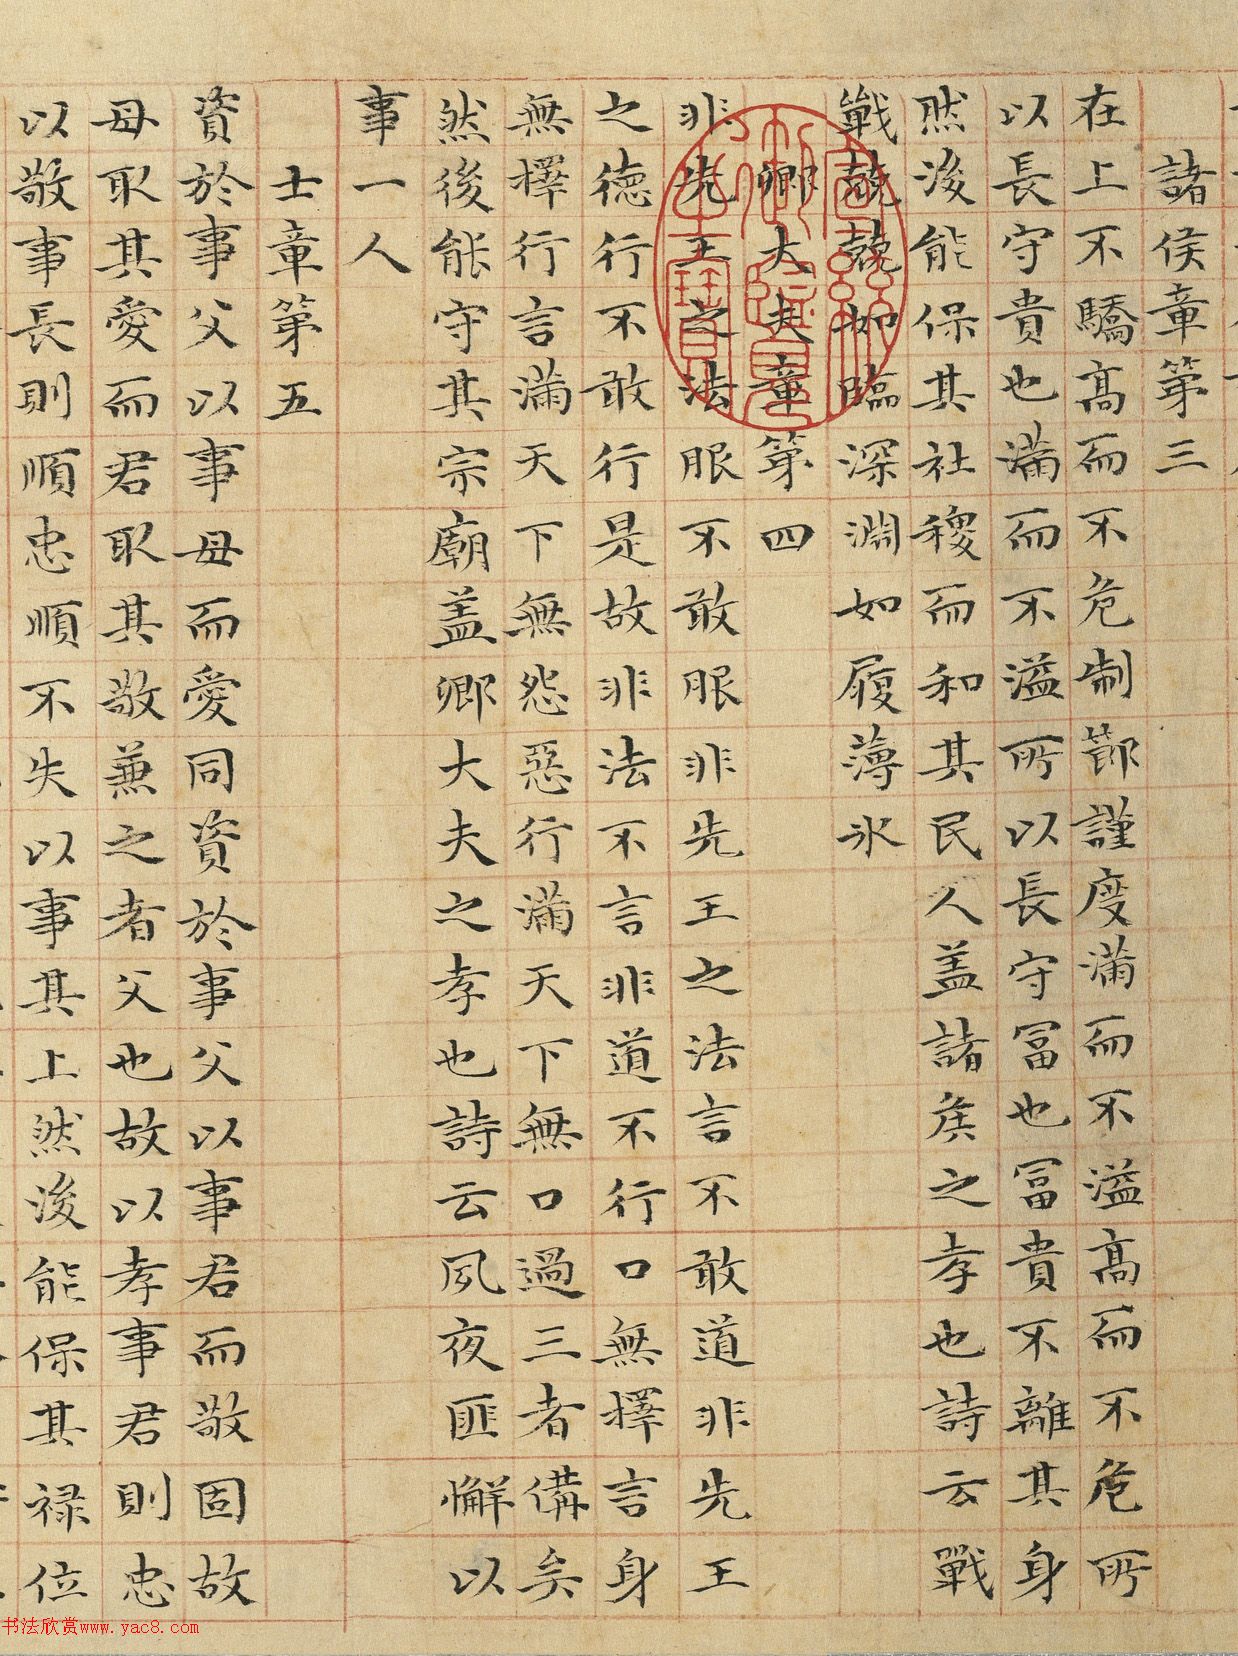 諸侯章第三
在上不驕髙而不危制節謹度滿而不溢髙而不危所
以長守貴也滿而不溢所以長守冨也冨貴不離其身
然後能保其社稷而和其民人盖諸侯之孝也詩云戰
戰兢兢如臨深淵如履薄氷
卿大夫章第四
非先王之法服不敢服非先王之法言不敢道非先王
之德行不敢行是故非法不言非道不行口無擇言身
無擇行言滿天下無怨惡行滿天下無口過三者備矣
然後能守其宗廟盖卿大夫之孝也詩云夙夜匪懈以
事一人
士章第五
資於事父以事母而愛同資於事父以事君而敬固故
母取其愛而君取其敬兼之者父也故以孝事君則忠
以敬事長則順忠順不失以事其上然後能保其禄位
书法欣赏www.yac8.com